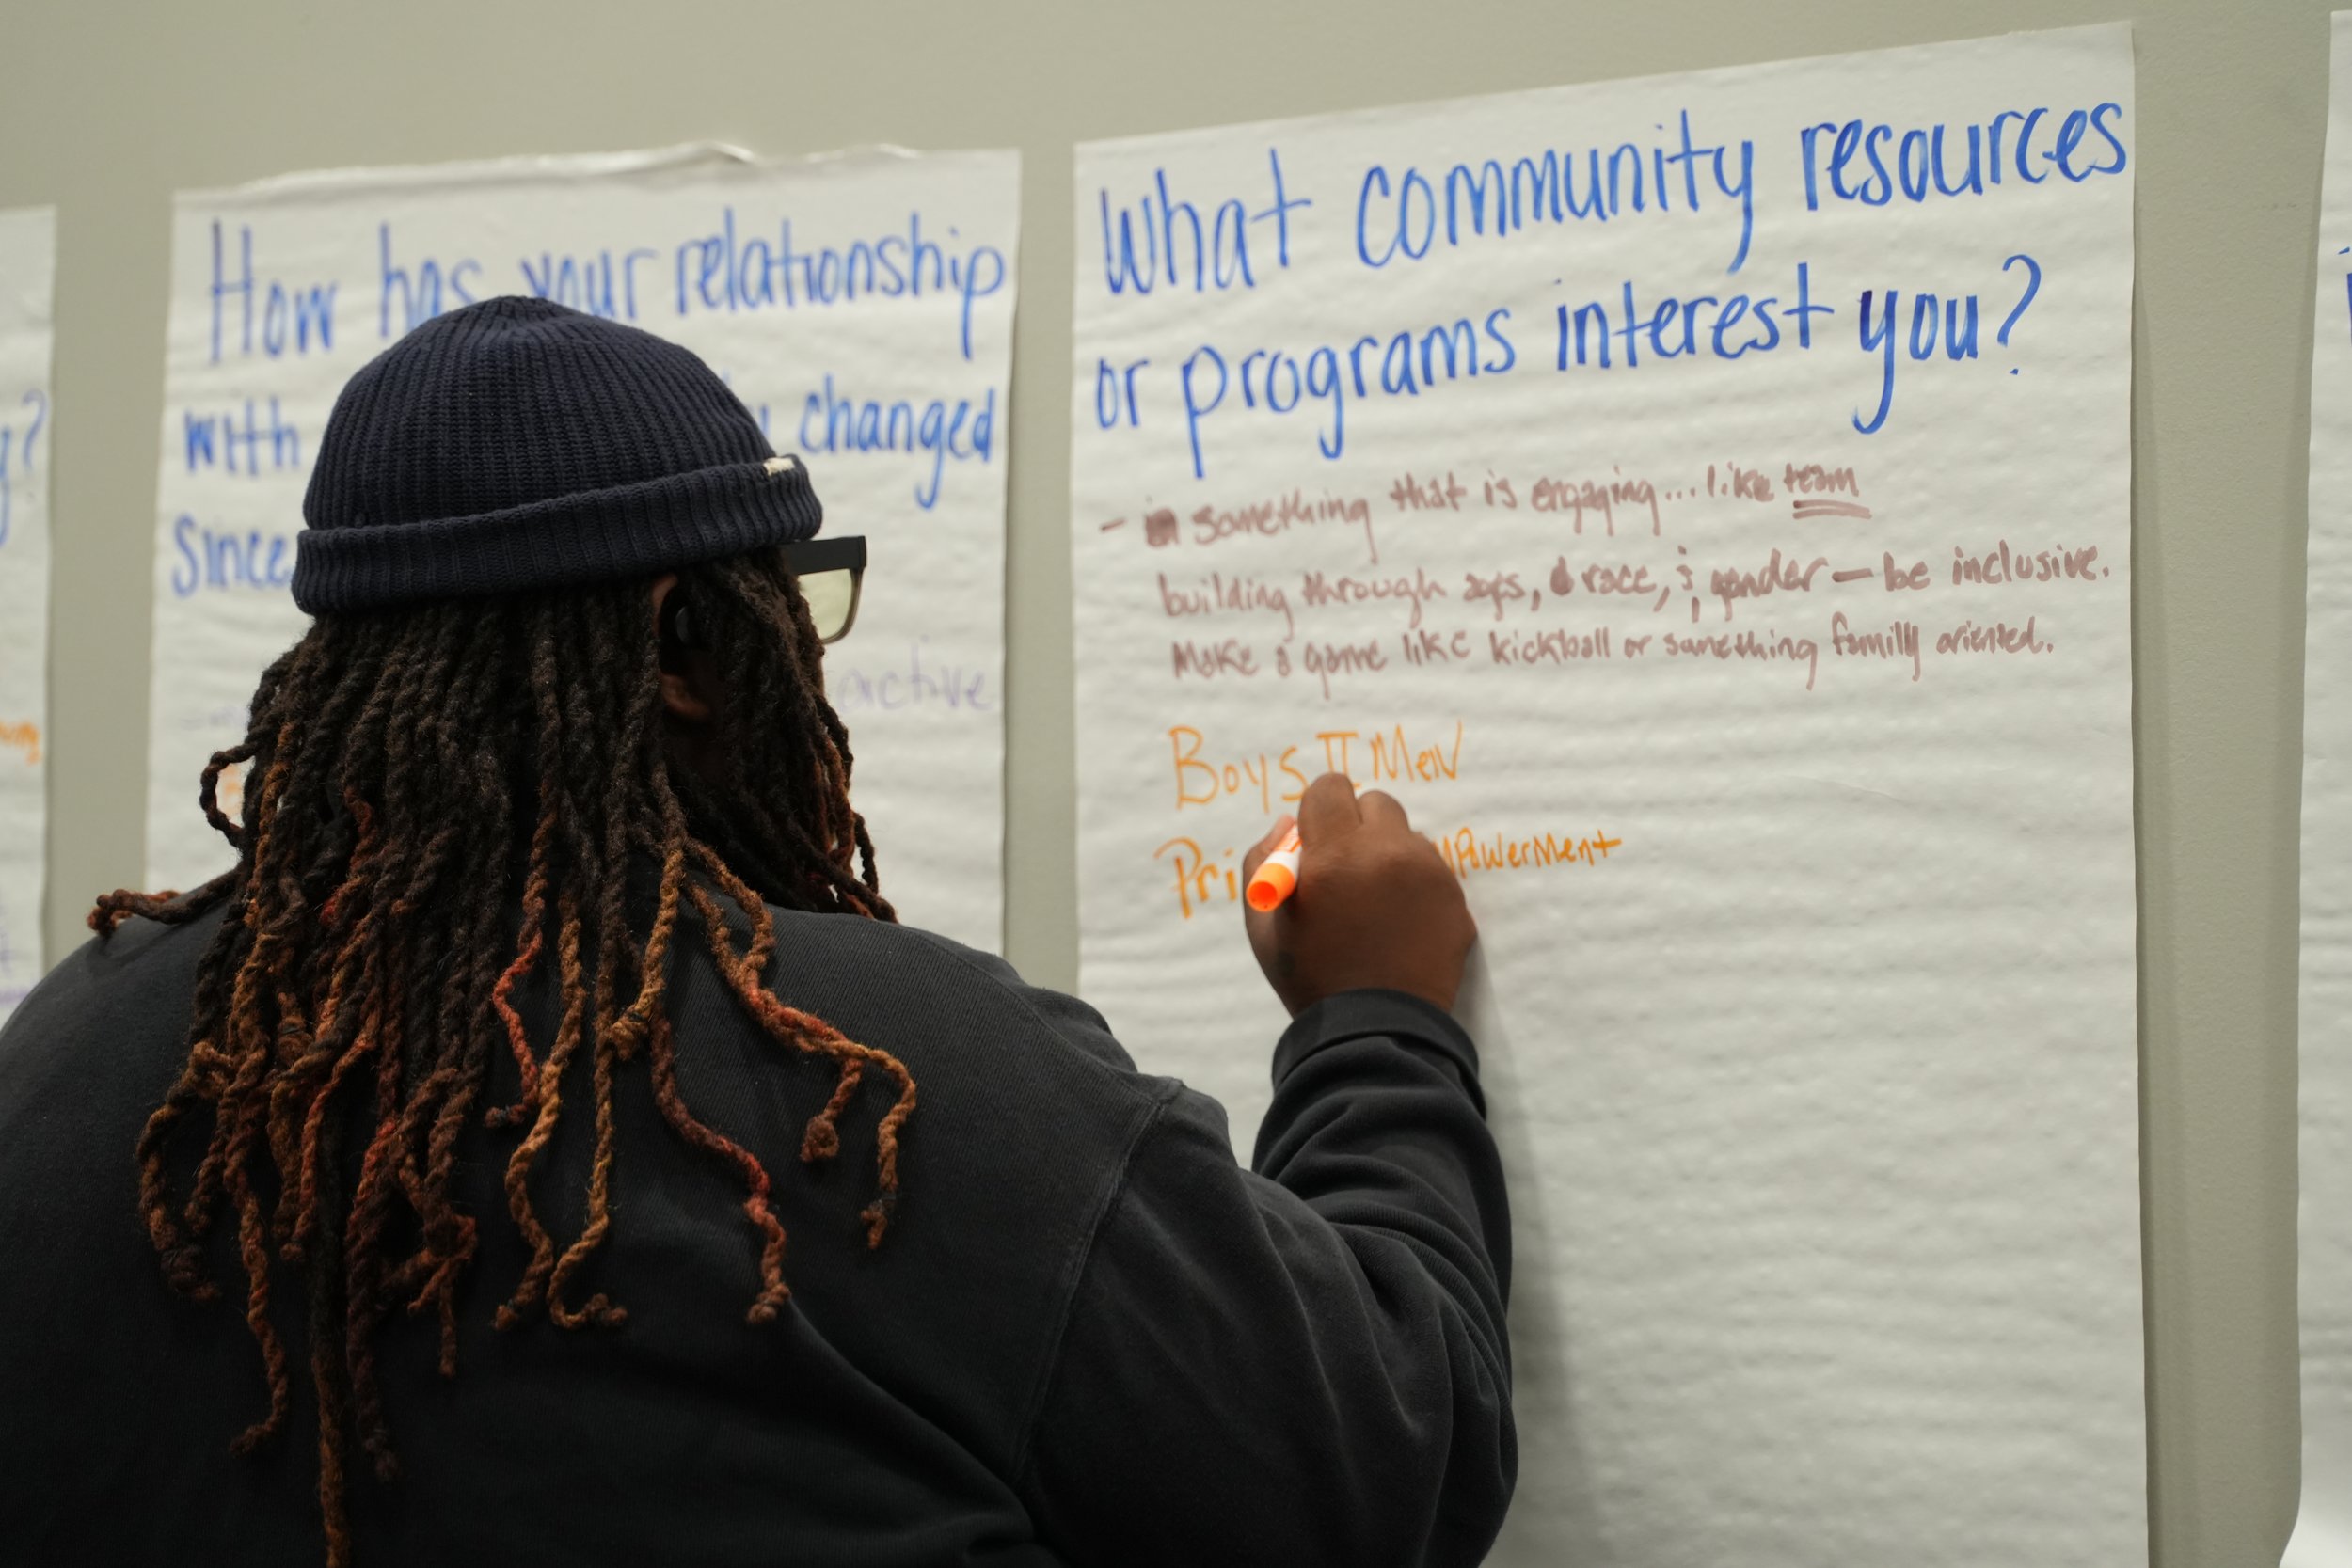 y?
How has your relationship
with changed
Since
active
What community resources
or programs interest you?
- something that is engaging... like team
building through ages, race, & gender — be inclusive.
Make a game like kickball or something family oriented.
Boys II Men